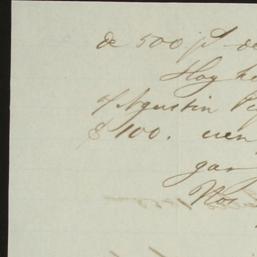 de 500 p$ de
Hoy he
Agustin
$100. cuen
gar
Nos